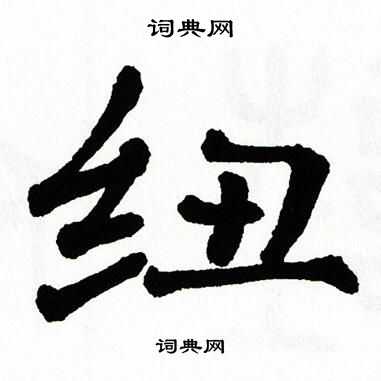 词典网
纽
词典网